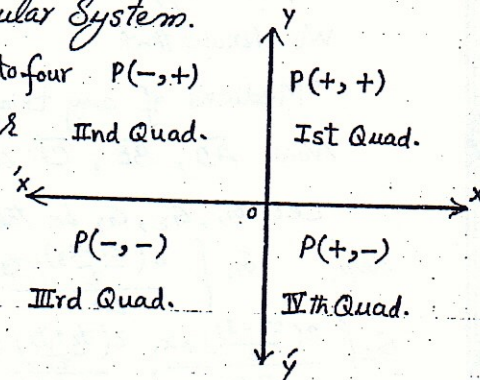 ular System.
Y
to four P(-,+) P(+, +)
IInd Quad. Ist Quad.
'X X
O
P(-, -) P(+,-)
IIIrd Quad. IVth Quad.
Y'